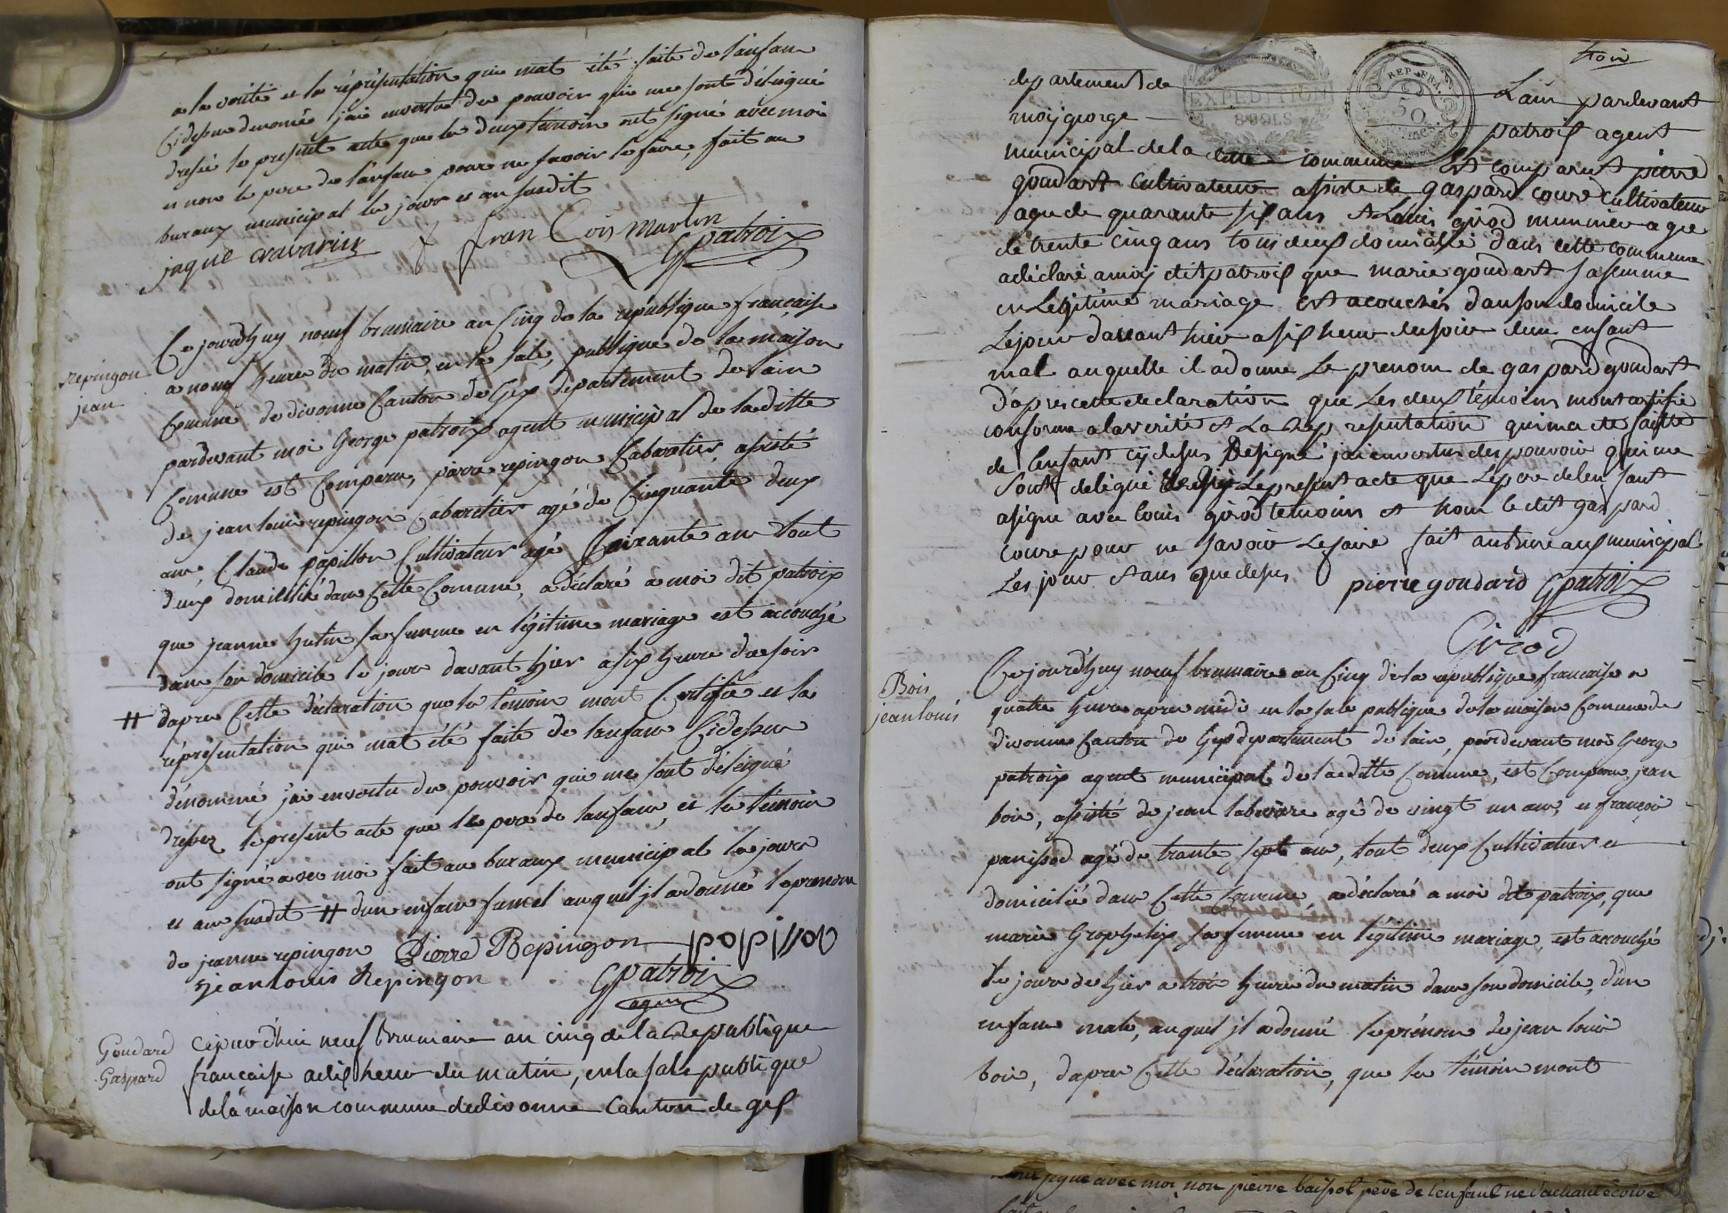 a la verité et la réprésentation qui mat été faite de lanfan
Cidesu denomée jai envertu du pouvoir qui me sont délégué
dresée le présent acte que les deux temoin ont signé avec moi
et non le pere de lanfan pour ne savoir le faire, fait au
buraux municipal les jours et an susdit
jaque ravarin fran Cois martin
GPatroix
Repingon
jean
Ce jourdhuy neuf brumaire an Cinq de la république francaise
a neuf heure du matin, en la sale publique de la maison
Comune de divonne Canton de Gex departement de lain
pardevant moi George patroix agent municipal de laditte
Comune est Comparu, pierre repingon Cabaretier, asisté
de jean louis repingon Cabaretier agé de Cinquante deux
ans, Claude papillon Cultivateur agé Soixante ans tout
deux domicilié dans Cette Comune, a déclaré a moi dit patroix
que jeanne hutin sa femme en légitime mariage est accouché
dans son domicile le jour davant hier a six heure du soir
# dapres Cette déclaration que les temoin mont Certifié et la
réprésentation qui mat été faite de lanfan Cidesu
dénommé jai envertu du pouvoir qui me sont délégué
drésez le présent acte que le pere de lanfan, et les temoin
ont signé avec moi fait au buraux municipal les jours
et an susdit # dun enfan fumel auquel jl a donné le prenom
de jeanne repingon Pierre Repingon papillon
jean louis Repingon GPatroix
agent
Goudard
Gaspard
cejourdhui neuf brumaire an cinq de la Republique
francaise a dix heur du matin, en la sale publique
de la maison commune de divonne Canton de gex
trois
departement de Lain pardevant
EXPEDITION
REP. FRA.
50
moy george patroix agent
municipal de la ditte commune Est comparut pierre
goudart Cultivateur asisté de gaspard couvre Cultivateur
age de quarante six ans & Louis girod munnier age
de trente cinq ans tous deux domicilié dans cette commune
a déclaré a moy dit patroix que marie goudart sa femme
en Legitime mariage Est acouchés dans son domicile
Le jour davant hier a six heur du soir dun enfant
mal auquelle il a donne Le prenom de gaspard goudart
d'apres cette declaration que Les deux témoins mont certifié
conforme a la verité & La representation qui ma ete faitte
de lenfant cy desus Designé jai envertus des pouvoir qui me
sont deligué Le present acte que Le pere de len fant
a signe avec louis girod temoins et non le dit gaspard
couvre pour ne savoir Le faire fait au bureaux municipal
Les jour & ans que desus pierre goudard GPatroix
Girod
Bois
jean louis
Ce jourdhuy neuf brumaire an Cinq de la republique francaise a
quatre heure apres midi en la sale publique de la maison Comune de
divonne Canton de Gex departement de lain, pardevant moi George
patroix agent municipal de laditte Comune, est Comparu jean
bois, asisté de jean labaviere agé de vingt un ans, et françois
panissod agé de trante sept ans, tout deux Cultivateur et
domicilié dans Cette Comune, a déclaré a moi dit patroix, que
marie sa femme en légitime mariage, est accouché
le jour de hier a trois heure du matin dans son domicile, d'un
enfan male, auquel jl a donné le prénom de jean louis
bois, dapres Cette déclaration, que les témoin mont
avec moi non pierre pere de lenfant ne sachant écrire